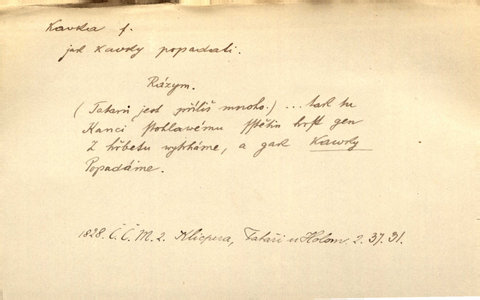 Kavka f.
jak kavky popadati.
Rázym.
(Tatarů jest příliš mnoho.) ... tak tu
Kanci Stohlavému sstětin hrst gen
Z hřbetu wytrháme, a gak Kawky
Popadáme.
1828. Č.Č.M. 2. Klicpera, Tataři u Holom. 2. 37. 31.